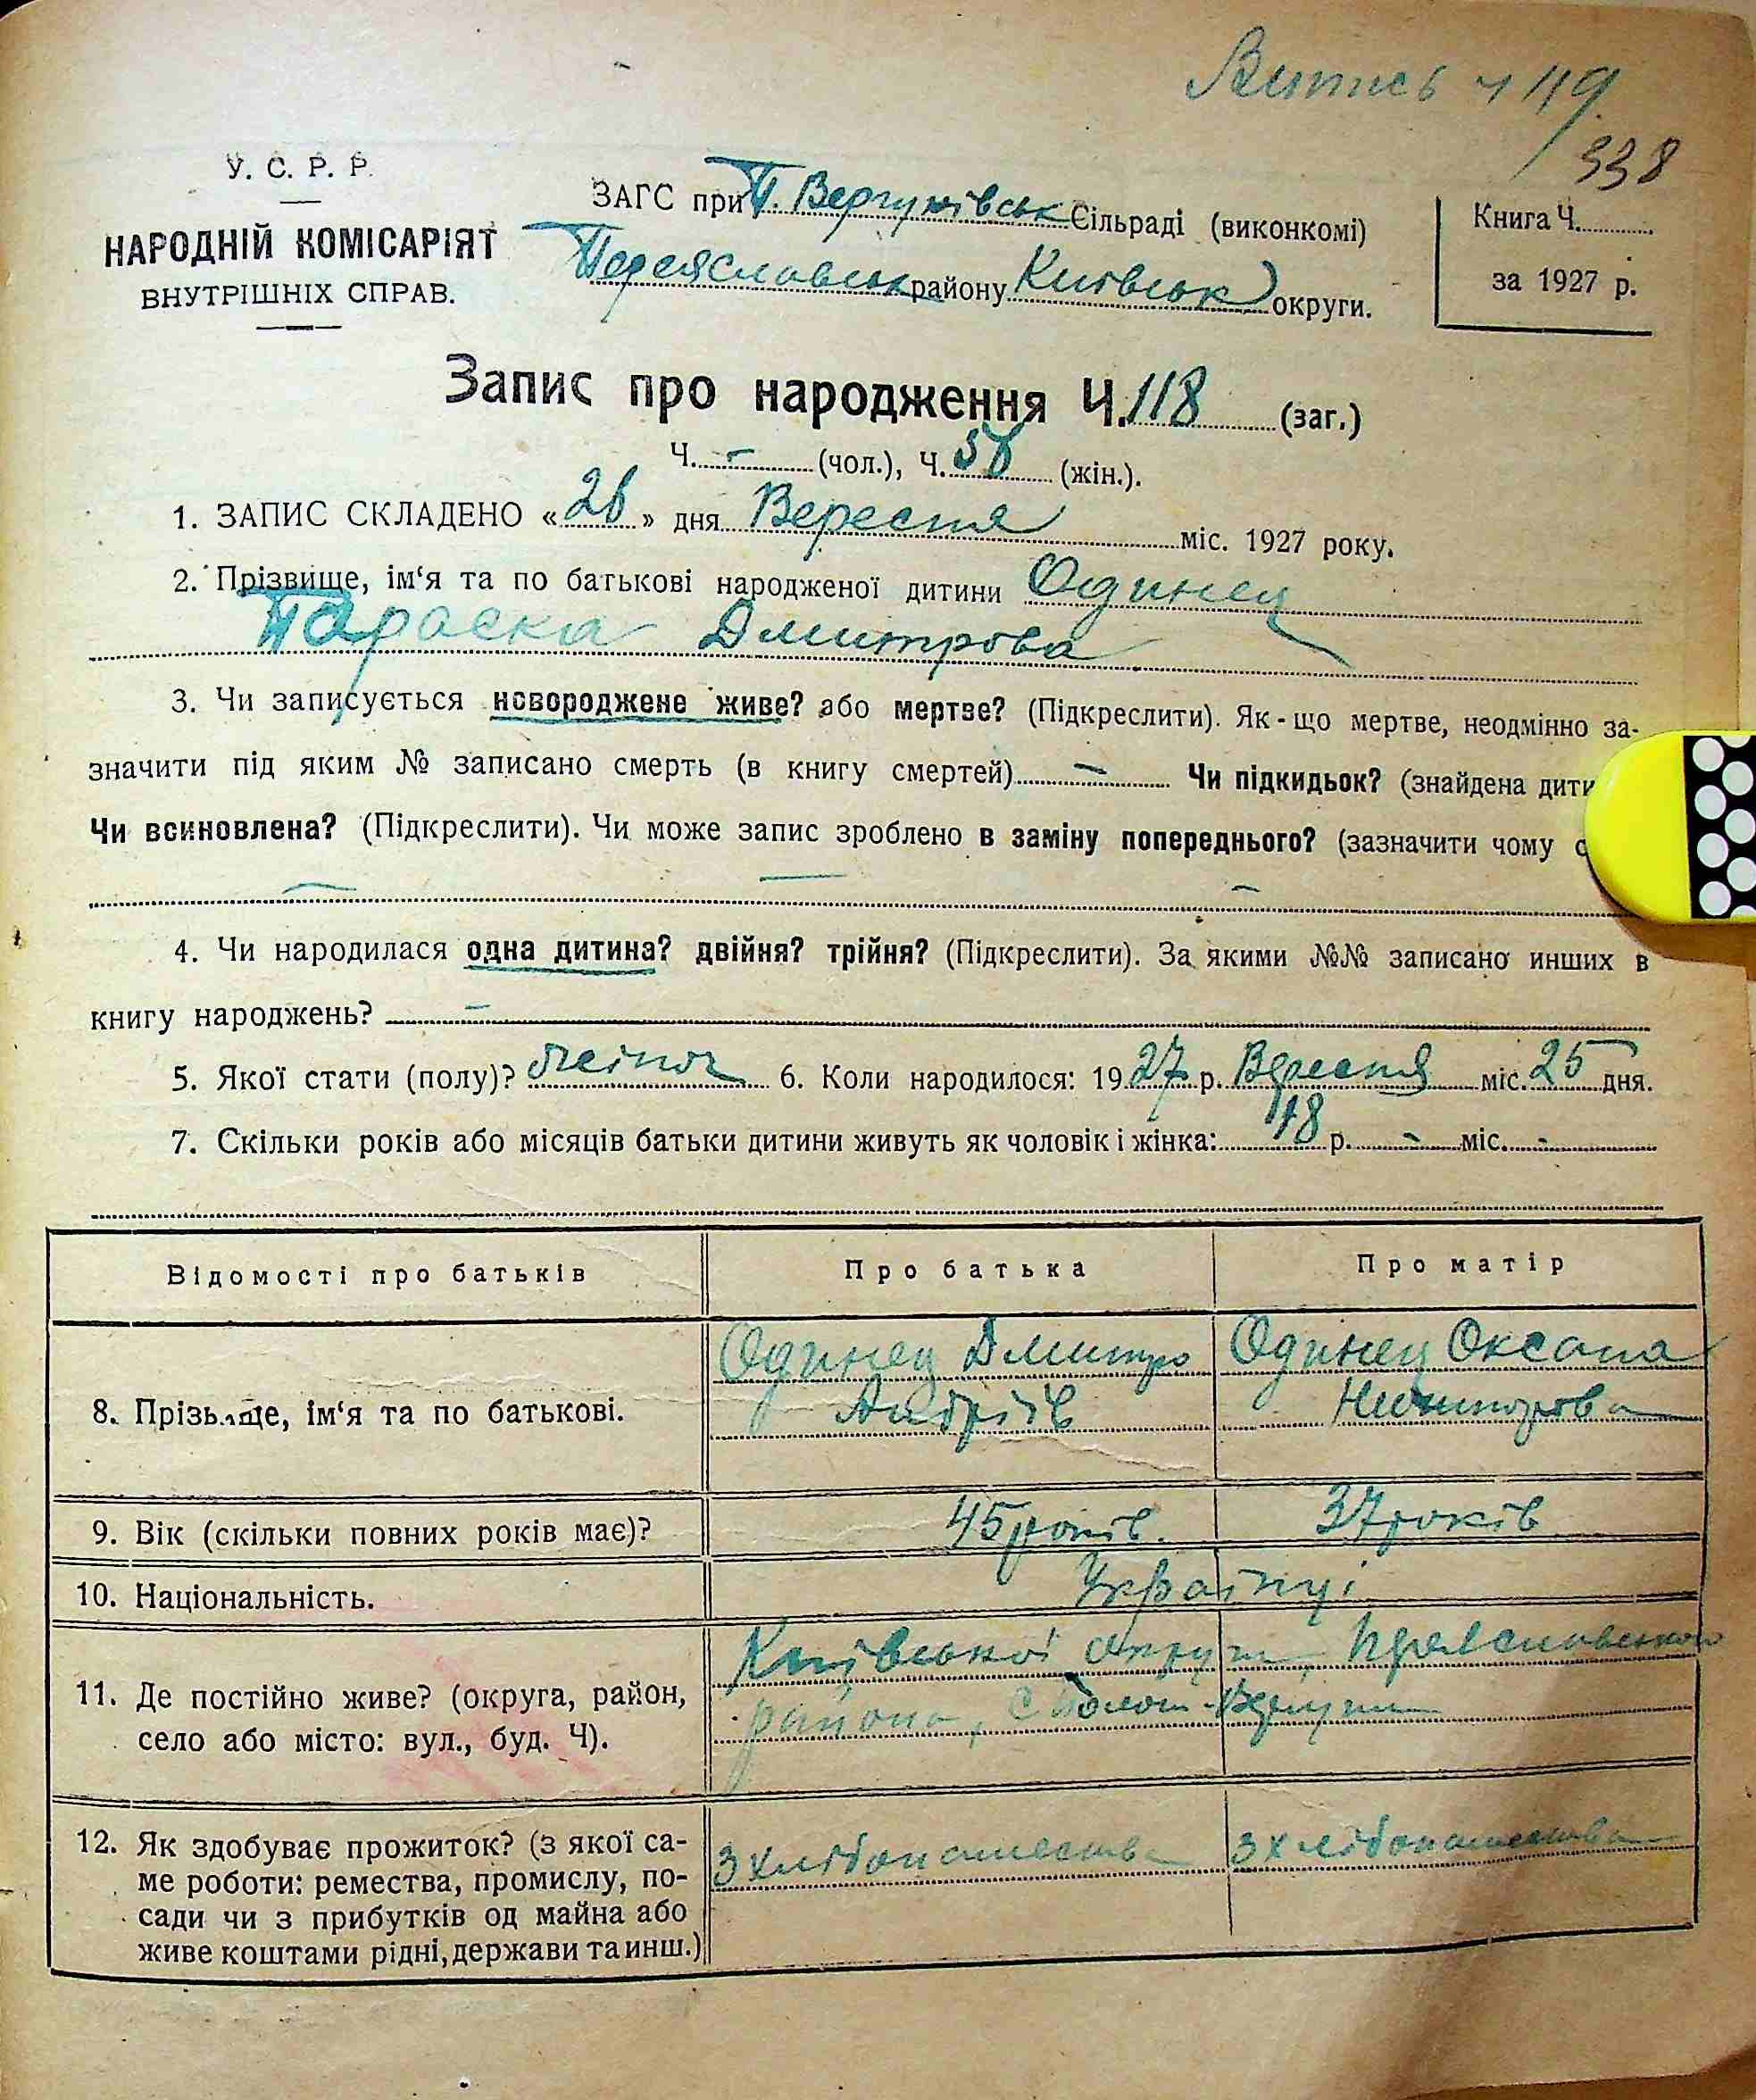 Витпсь ч 119
338
У. С. Р. Р.
НАРОДНІЙ КОМІСАРІЯТ
ВНУТРІШНІХ СПРАВ.
ЗАГС при П. Вергунівськ Сільраді (виконкомі)
Переяславськ району Київськ округи.
Книга Ч.
за 1927 р.
Запис про народження Ч. 118 (заг.)
Ч. - (чол.), Ч. 56 (жін.).
1. ЗАПИС СКЛАДЕНО «26» дня Вересня міс. 1927 року.
2. Прізвище, ім‘я та по батькові народженої дитини Одинец
Параска Дмитрова
3. Чи записується новороджене живе? або мертве? (Підкреслити). Як-що мертве, неодмінно за-
значити під яким № записано смерть (в книгу смертей) — Чи підкидьок? (знайдена дити
Чи всиновлена? (Підкреслити). Чи може запис зроблено в заміну попереднього? (зазначити чому с
— — -
4. Чи народилася одна дитина? двійня? трійня? (Підкреслити). За якими №№ записано инших в
книгу народжень? —
5. Якої стати (полу)? жіноч 6. Коли народилося: 1927 р. Вересня міс. 25 дня.
7. Скільки років або місяців батьки дитини живуть як чоловік і жінка: 18 р. - міс. -
Відомості про батьків Про батька Про матір
8. Прізвище, ім‘я та по батькові.
Одинец Дмитро
Андріїв
Одинец Оксана
9. Вік (скільки повних років має)? 45 років. 37 років
10. Національність. Українці
11. Де постійно живе? (округа, район,
село або місто: вул., буд. Ч).
Київської округи, Преяславського
района, с
12. Як здобуває прожиток? (з якої са-
ме роботи: ремества, промислу, по-
сади чи з прибутків од майна або
живе коштами рідні, держави та инш.)
З хлібопашества
З хлібопашества